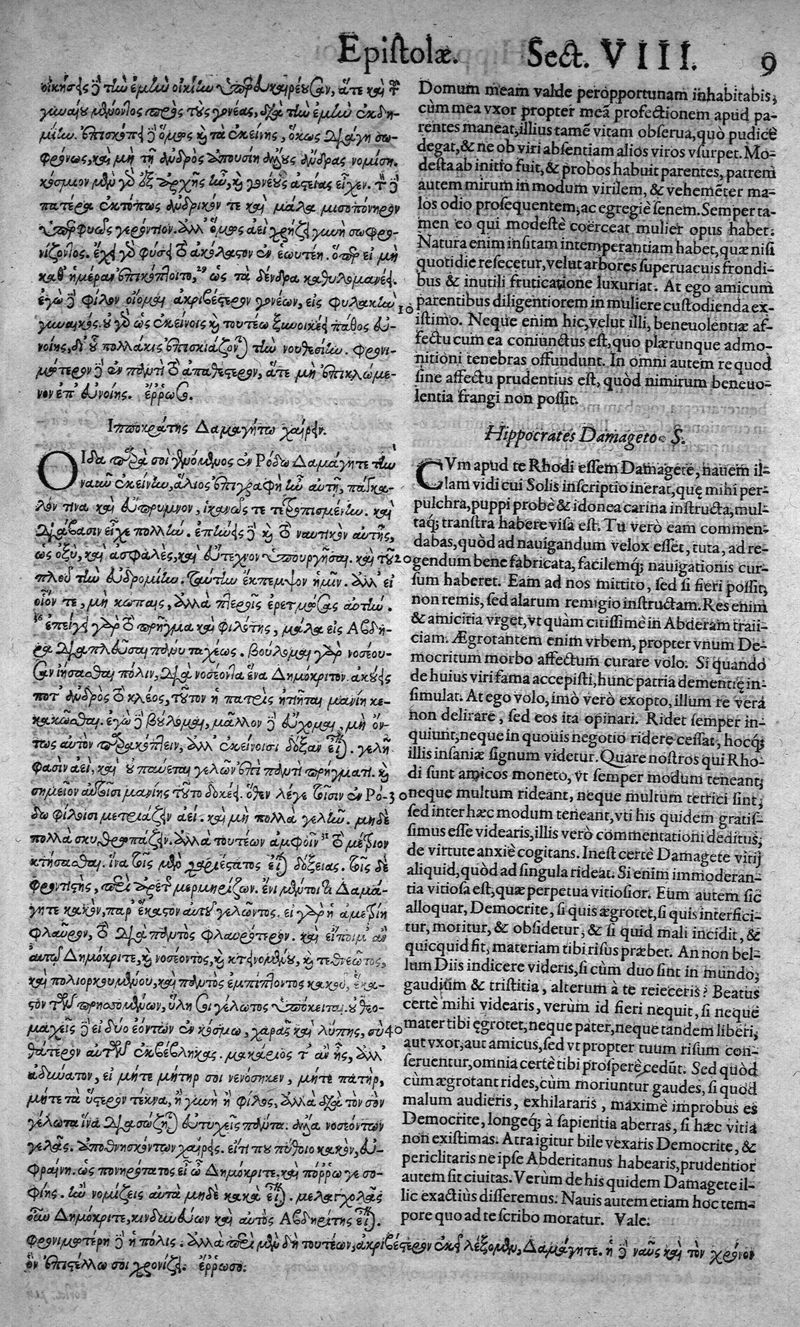 Epistolæ. Sect. VIII. 9
οἰκήσεις δὲ τὴν ἐμὴν οἰκίην
γυναίου μένοντος πρὸς τοὺς γονέας, διὰ τὴν ἐμὴν ἐκδη-
μίην. ἐπισκόπει δὲ ὅμως καὶ τὰ ἐκείνης, ὅκως διάγῃ σω-
φρόνως, καὶ μὴ τῇ ἀνδρὸς ἀπουσίῃ ἄλλους ἄνδρας νομίσῃ.
κόσμιον μὲν γὰρ ἐξ ἀρχῆς ἦν, καὶ γονέας ἀστείας εἶχεν. τὸν δὲ
πατέρα ἐκτόπως ἀνδρικόν τε καὶ μάλα μισοπόνηρον
ὑπερφυῶς γερόντιον. ἀλλ' ὅμως ἀεὶ χρῄζει γυνὴ σωφρο-
νίζοντος. ἔχει γὰρ φύσει τὸ ἀκόλαστον ἐν ἑωυτῇ. ὅπερ εἰ μὴ
καθ' ἡμέραν ἐπικόπτοιτο, ὡς τὰ δένδρα καθυλομανέει.
ἐγὼ δὲ φίλον οἴομαι ἀκριβέστερον γονέων, εἰς φυλακὴν
γυναικός. οὐ γὰρ ὡς ἐκείνοις καὶ τουτέῳ ξυνοικέει πάθος εὐ-
νοίης, δι' οὗ πολλάκις ἐπισκιάζονται τὴν νουθεσίην. φρονι-
μώτερον δὲ ἐν παντὶ τὸ ἀπαθέστερον, ἅτε μὴ ἐπικλώμε-
νον ἐπ' εὐνοίης. ἔρρωσο.
Ἱπποκράτης Δαμαγήτῳ χαίρειν.
ΟΙδα παρὰ σοὶ γενόμενος ἐν Ῥόδῳ Δαμάγητε τὴν
ναῦν ἐκείνην, ἅλιος ἐπιγραφὴ ἦν αὐτῇ, πάγκα-
λόν τινα καὶ εὔπρυμνον, ἱκανῶς τε τετροπισμένην. καὶ
διάβασιν εἶχε πολλήν. ἐπῄνεις δὲ καὶ τὸ ναυτικὸν αὐτῆς,
ὡς ὀξὺ, καὶ ἀσφαλὲς, καὶ εὔτεχνον ὑπουργῆσαι. καὶ τοῦ
πλοῦ τὴν εὐδρομίην. ταύτην ἔκπεμψον ἡμῖν. ἀλλ' εἰ
οἷόν τε, μὴ κώπαις, ἀλλὰ πτεροῖς ἐρετμώσας αὐτήν.
ἐπείγει γὰρ τὸ πρῆγμα καὶ φιλότης, μάλα εἰς Ἄβδη-
ρα διαπλεῦσαι πάνυ ταχέως. βούλομαι γὰρ νοσέου-
σαν ἰήσασθαι πόλιν, διὰ νοσέοντα ἕνα Δημόκριτον. ἀκούεις
ποτ' ἀνδρὸς τὸ κλέος, τοῦτον ἡ πατρὶς ᾐτίηται μανίῃ κε-
κακῶσθαι. ἐγὼ δὲ βούλομαι, μᾶλλον δὲ εὔχομαι, μὴ ὄν-
τως αὐτὸν παρακόπτειν, ἀλλ' ἐκείνοισι δόξαν εἶναι. γελῇ
φασὶν ἀεὶ, καὶ οὐ παύεται γελῶν ἐπὶ παντὶ πρήγματι. καὶ
σημεῖον αὐτοῖσι μανίης τοῦτο δοκέει. ὅθεν λέγε τοῖσιν ἐν Ῥό-
δῳ φίλοισι μετριάζειν ἀεὶ. καὶ μὴ πολλὰ γελῆν. μηδὲ
πολλὰ σκυθρωπάζειν. ἀλλὰ τουτέων ἀμφοῖν τὸ μέτριον
κτήσασθαι. ἵνα τοῖς μὲν χαριέστατος εἶναι δόξειας. τοῖς δὲ
φροντιστὴς, περὶ ἀρετῆς μερμηρίζων. ἔνι μέντοι τι Δαμά-
γητε κακὸν, παρ' ἕκαστον αὐτοῦ γελῶντος. εἰ γὰρ ἡ ἀμετρίη
φλαῦρον, τὸ διαπαντὸς φλαυρότερον. καὶ εἴποιμ' ἂν
αὐτῷ Δημόκριτε, καὶ νοσέοντος, καὶ κτεινομένου, καὶ τεθνεῶτος,
καὶ πολιορκουμένου, καὶ παντὸς ἐμπίπτοντος κακοῦ, ἕκα-
στον τῶν πρησσομένων, ὕλη σοι γέλωτος ὑπόκειται. οὐ θεο-
μαχεῖς δὲ εἰ δύο ἐόντων ἐν κόσμῳ, χαρᾶς καὶ λύπης, σὺ
θάτερον αὐτῶν ἐκβέβληκας. μακάριός τ' ἂν ἦς, ἀλλ'
ἀδύνατον, εἰ μήτε μήτηρ σοι νενόσηκεν, μήτε πατὴρ,
μήτε τὰ ὕστερον τέκνα, ἢ γυνὴ ἢ φίλος, ἀλλὰ διὰ τὸν σὸν
γέλωτα ἵνα διασώζηται εὐτυχεῖς πάντα. ἀλλὰ νοσεόντων
γελᾷς. ἀποθνησκόντων χαίρεις. εἴ τί που πύθοιο κακὸν, εὐ-
φραίνῃ. ὡς πονηρότατος εἶ ὦ Δημόκριτε, καὶ πόρρω γε σο-
φίης. ἢν νομίζεις αὐτὰ μηδὲ κακὰ εἶναι. μελαγχολᾷς
οὖν Δημόκριτε, κινδυνεύων καὶ αὐτὸς Ἀβδηρίτης εἶναι.
φρονιμωτέρη δὲ ἡ πόλις. ἀλλὰ περὶ μὲν δὴ τουτέων, ἀκριβέστερον ἐκεῖ λέξομεν, Δαμάγητε. ἡ δὲ ναῦς καὶ τὸν χρόνον
ὃν ἐπιστέλλω σοι χρονίζει. ἔρρωσο.
Domum meam valde peropportunam inhabitabis,
cùm mea vxor propter meā profectionem apud pa-
rentes maneat, illius tamē vitam obserua, quò pudicè
degat, & ne ob viri absentiam alios viros vsurpet. Mo-
desta ab initio fuit, & probos habuit parentes, patrem
autem mirum in modum virilem, & vehemēter ma-
los odio prosequentem, ac egregiè senem. Semper ta-
men eo qui modestè coërceat mulier opus habet.
Natura enim insitam intemperantiam habet, quæ nisi
quotidie resecetur, velut arbores superuacuis frondi-
bus & inutili fruticatione luxuriat. At ego amicum
10 parentibus diligentiorem in muliere custodienda ex-
istimo. Neque enim hic, velut illi, beneuolentiæ af-
fectu cum ea coniunctus est, quo plærunque admo-
nitioni tenebras offundunt. In omni autem re quod
sine affectu prudentius est, quòd nimirum beneuo-
lentia frangi non possit.
Hippocrates Damageto S.
CVm apud te Rhodi essem Damagete, nauem il-
lam vidi cui Solis inscriptio inerat, quę mihi per-
pulchra, puppi probè & idonea carina instructa, mul-
taq; transtra habere visa est. Tu verò eam commen-
dabas, quòd ad nauigandum velox esset, tuta, ad re-
20 gendum bene fabricata, facilemq; nauigationis cur-
sum haberet. Eam ad nos mittito, sed si fieri possit,
non remis, sed alarum remigio instructam. Res enim
& amicitia vrget, vt quàm citissimè in Abderam traii-
ciam. Ægrotantem enim vrbem, propter vnum De-
mocritum morbo affectum curare volo. Si quando
de huius viri fama accepisti, hunc patria dementię in-
simulat. At ego volo, imò verò exopto, illum re verâ
non delirare, sed eos ita opinari. Ridet semper in-
quiunt, neque in quouis negotio ridere cessat, hocq;
illis insaniæ signum videtur. Quare nostros qui Rho-
di sunt amicos moneto, vt semper modum teneant,
30 neque multum rideant, neque multum tetrici sint,
sed inter hæc modum teneant, vti his quidem gratis-
simus esse videaris, illis verò commentationi deditus,
de virtute anxiè cogitans. Inest certè Damagete vitij
aliquid, quòd ad singula rideat. Si enim immoderan-
tia vitiosa est, quæ perpetua vitiosior. Eum autem sic
alloquar, Democrite, si quis ægrotet, si quis interfici-
tur, moritur, & obsidetur, & si quid mali incidit, &
quicquid fit, materiam tibi risus præbet. An non bel-
lum Diis indicere videris, si cùm duo sint in mundo,
gaudium & tristitia, alterum à te reieceris? Beatus
certè mihi videaris, verùm id fieri nequit, si nequè
40 mater tibi ęgrotet, neque pater, neque tandem liberi,
aut vxor, aut amicus, sed vt propter tuum risum con-
seruentur, omnia certè tibi prosperè cedūt. Sed quòd
cùm ægrotant rides, cùm moriuntur gaudes, si quod
malum audieris, exhilararis, maximè improbus es
Democrite, longeq; à sapientia aberras, si hæc vitia
non existimas. Atra igitur bile vexaris Democrite, &
periclitaris ne ipse Abderitanus habearis, prudentior
autem sit ciuitas. Verùm de his quidem Damagete il-
lic exactius disseremus. Nauis autem etiam hoc tem-
pore quo ad te scribo moratur. Vale.